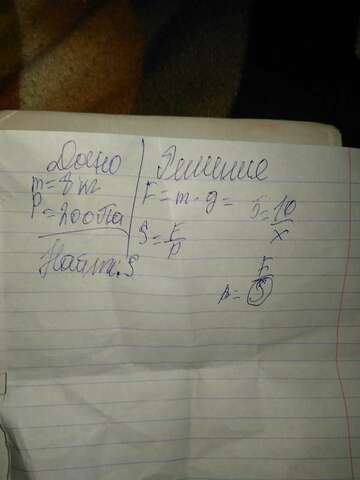 Дано
m = 8 кг
P = 200 Па
Найти: S
Решение
F = m · g =
S = F/P
5 = 10/x
p = F/S